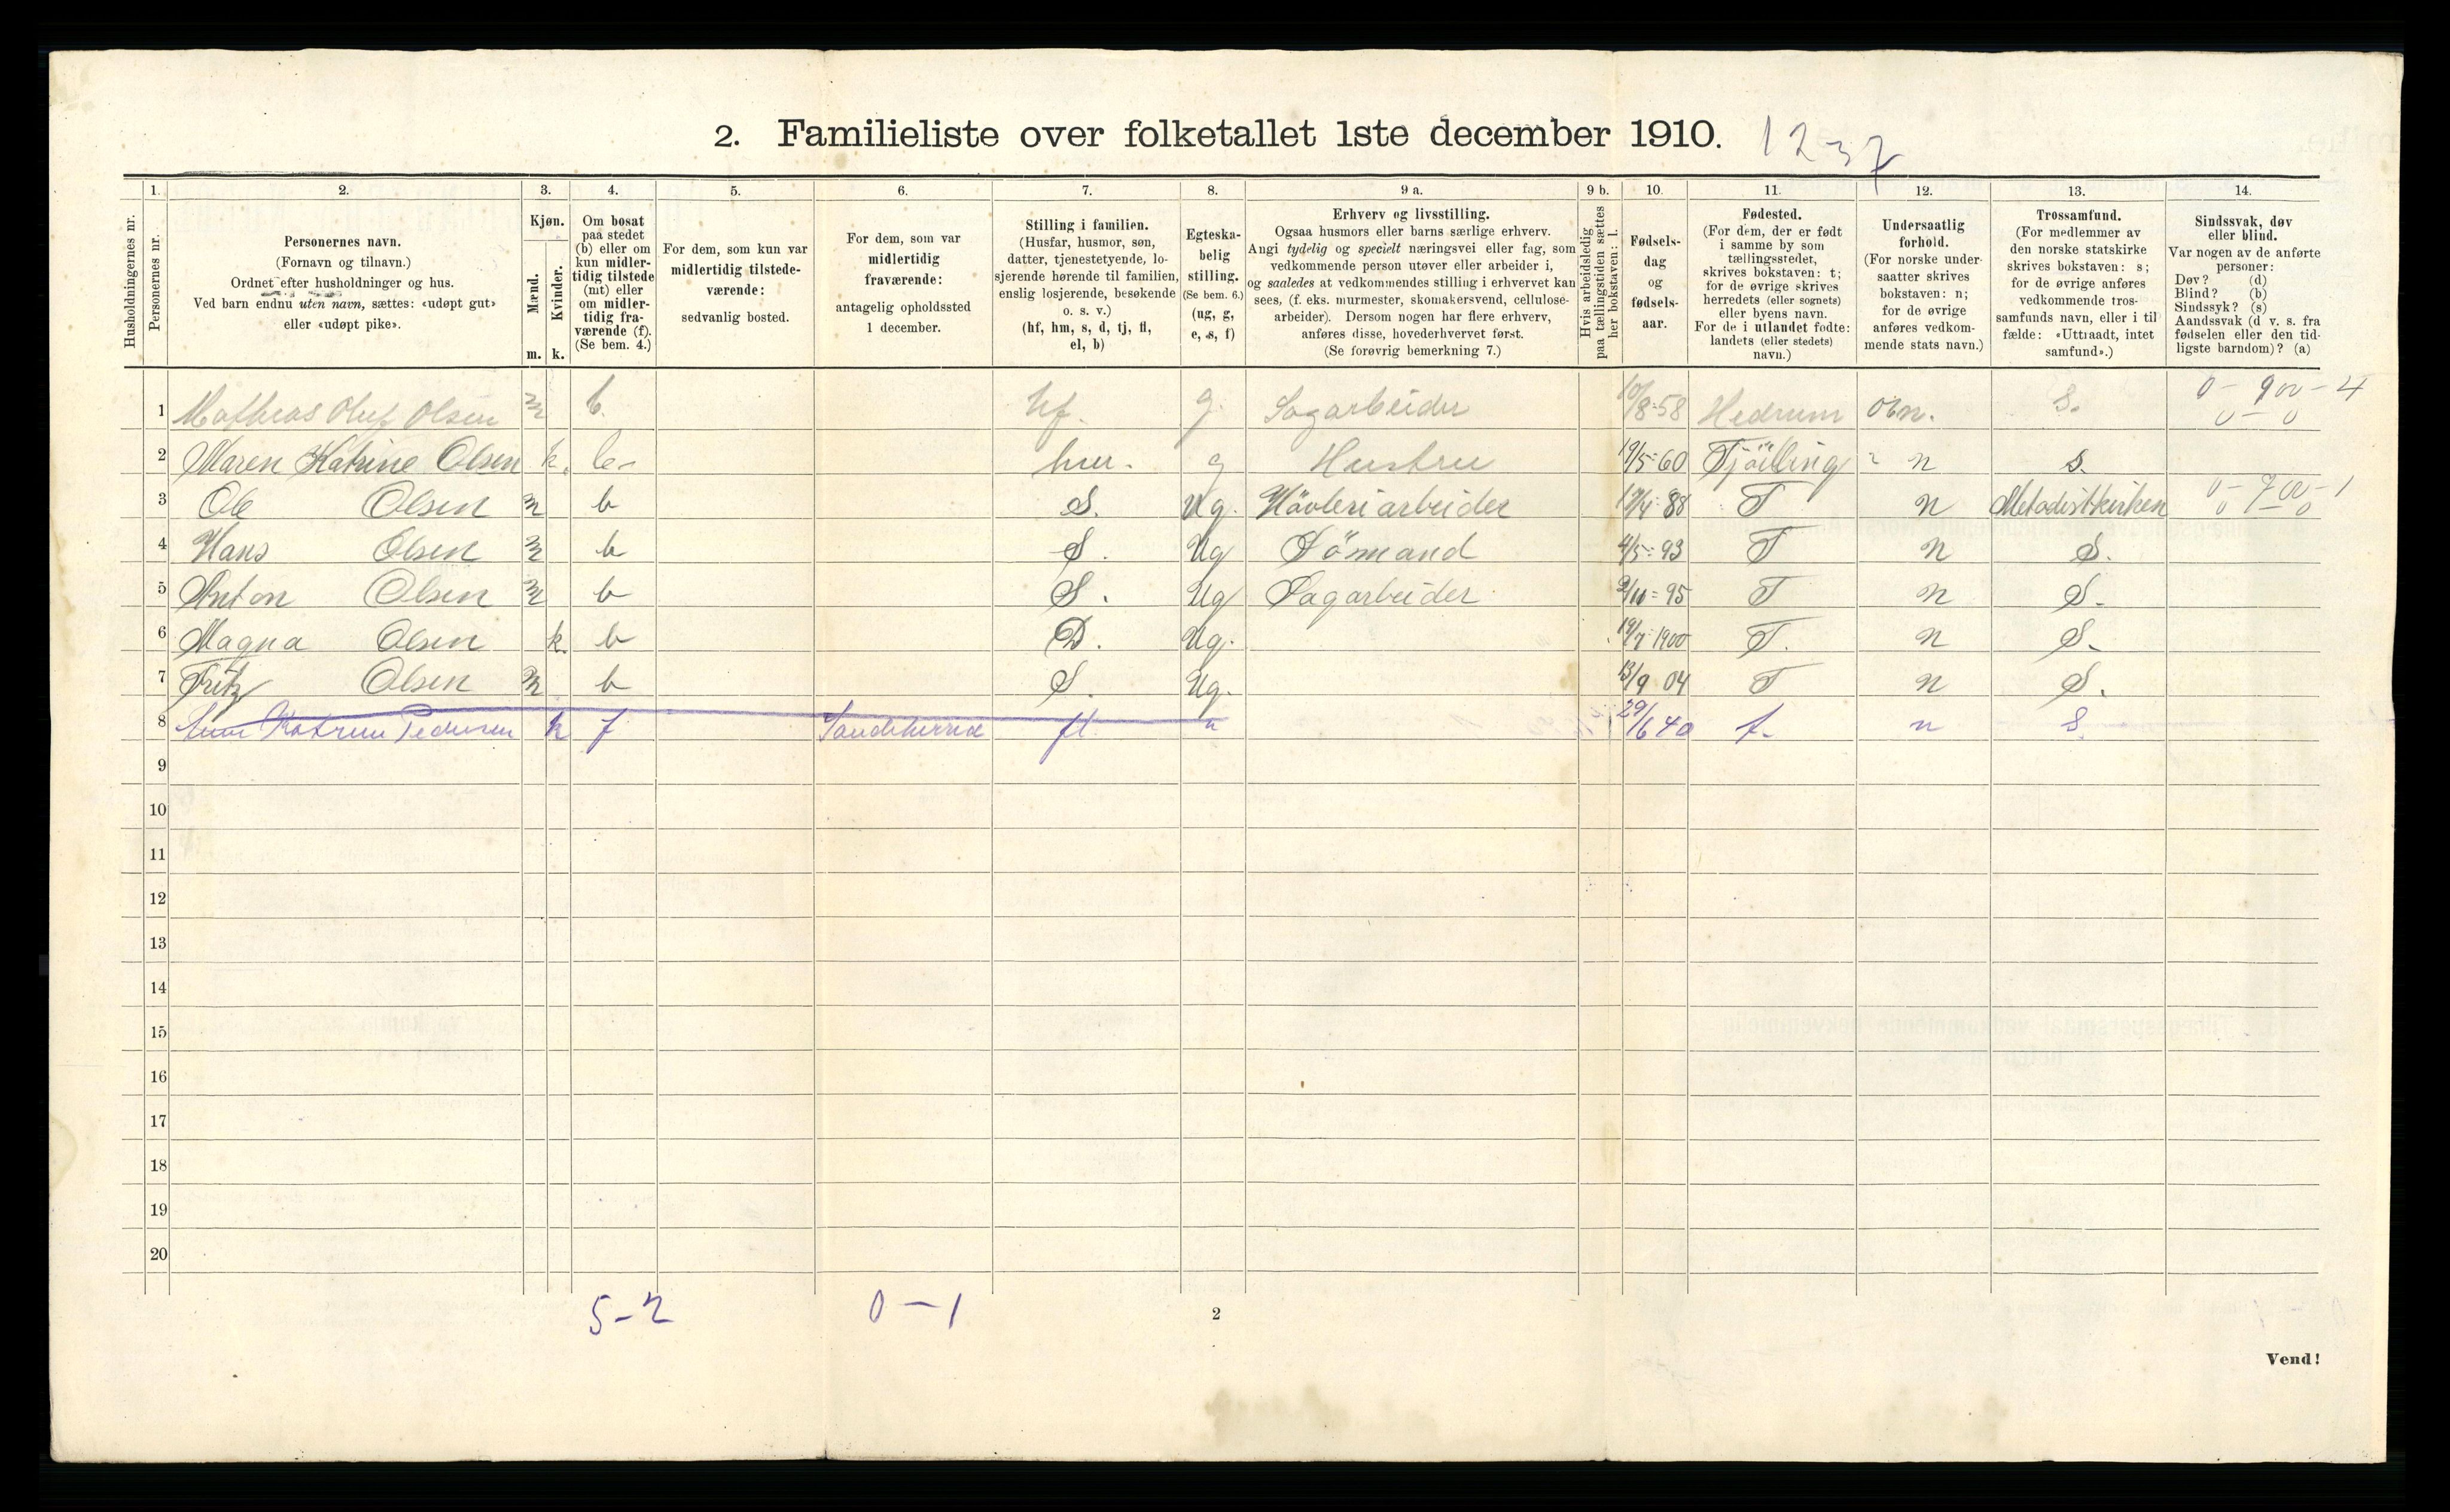 2. Familieliste over folketallet 1ste december 1910. 1237
Husholdningernes nr.
1.
Personernes nr.
2.
Personernes navn.
(Fornavn og tilnavn.)
Ordnet efter husholdninger og hus.
Ved barn endnu uten navn, sættes: «udøpt gut»
eller «udøpt pike».
3.
Kjøn.
Mænd.
Kvinder.
m. k.
4.
Om bosat
paa stedet
(b) eller om
kun midler-
tidig tilstede
(mt) eller
om midler-
tidig fra-
værende (f).
(Se bem. 4.)
5.
For dem, som kun var
midlertidig tilstede-
værende:
sedvanlig bosted.
6.
For dem, som var
midlertidig
fraværende:
antagelig opholdssted
1 december.
7.
Stilling i familien.
(Husfar, husmor, søn,
datter, tjenestetyende, lo-
sjerende hørende til familien,
enslig losjerende, besøkende
o. s. v.)
(hf, hm, s, d, tj, fl,
el, b)
8.
Egteska-
belig
stilling.
(Se bem. 6.)
(ug, g,
e, s, f)
9 a.
Erhverv og livsstilling.
Ogsaa husmors eller barns særlige erhverv.
Angi tydelig og specielt næringsvei eller fag, som
vedkommende person utøver eller arbeider i,
og saaledes at vedkommendes stilling i erhvervet kan
sees, (f. eks. murmester, skomakersvend, cellulose-
arbeider). Dersom nogen har flere erhverv,
anføres disse, hovederhvervet først.
(Se forøvrig bemerkning 7.)
9 b.
Hvis arbeidsledig
paa tællingstiden sættes
her bokstaven: l.
10.
Fødsels-
dag
og
fødsels-
aar.
11.
Fødested.
(For dem, der er født
i samme by som
tællingsstedet,
skrives bokstaven: t;
for de øvrige skrives
herredets (eller sognets)
eller byens navn.
For de i utlandet fødte:
landets (eller stedets)
navn.)
12.
Undersaatlig
forhold.
(For norske under-
saatter skrives
bokstaven: n;
for de øvrige
anføres vedkom-
mende stats navn.)
13.
Trossamfund.
(For medlemmer av
den norske statskirke
skrives bokstaven: s;
for de øvrige anføres
vedkommende tros-
samfunds navn, eller i til
fælde: «Uttraadt, intet
samfund».)
14.
Sindssvak, døv
eller blind.
Var nogen av de anførte
personer:
Døv? (d)
Blind? (b)
Sindssyk? (s)
Aandssvak (d v. s. fra
fødselen eller den tid-
ligste barndom)? (a)
1 Mathias Oluf Olsen m b. hf. g. Sagarbeider 10/8-58 Hedrum n. s. 0 - 900 - 4
0 - 0
2 Maren Katrine Olsen k. b- hm. g Hustru 19/5-60 Tjölling n s.
3 Ole Olsen m b S. Ug. Hövleriarbeider 88 T n Metodistkirken 0 - 700 - 1
0 - 0
4 Hans Olsen m b S. Ug Sömand 4/5-93 T n S.
5 Anton Olsen m b S. Ug Sagarbeider 95 T n S.
6 Magna Olsen k. b D. Ug. 19/7-1900 T. n S.
7 Fritz Olsen m b S. Ug. 13/9 04 T n S.
8 Katrine Pedersen k f Sandeherred fl 29/6 40 t. n S.
9
10
11
12
13
14
15
16
17
18
19
20
5-2 0-1
2
Vend!